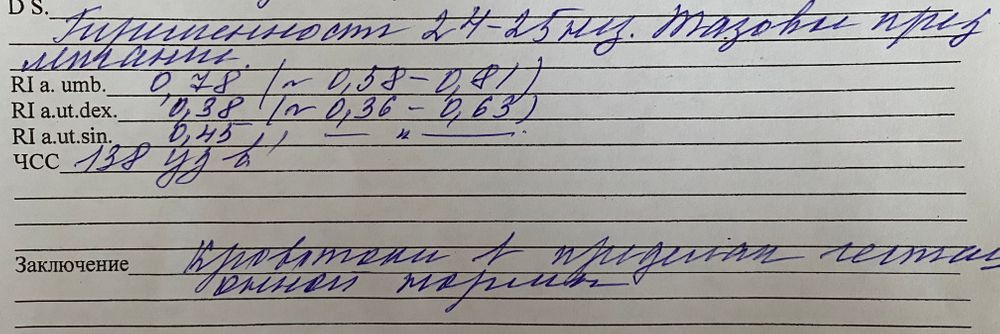 D S.
Беременность 24-25 нед. Тазовое пред
лежание.
RI a. umb. 0,78 (N 0,58 - 0,81)
RI a.ut.dex. 0,38 (N 0,36 - 0,63)
RI a.ut.sin. 0,45 — " —
ЧСС 138 уд в'
Заключение Кровотоки в пределах гестаци
онной нормы